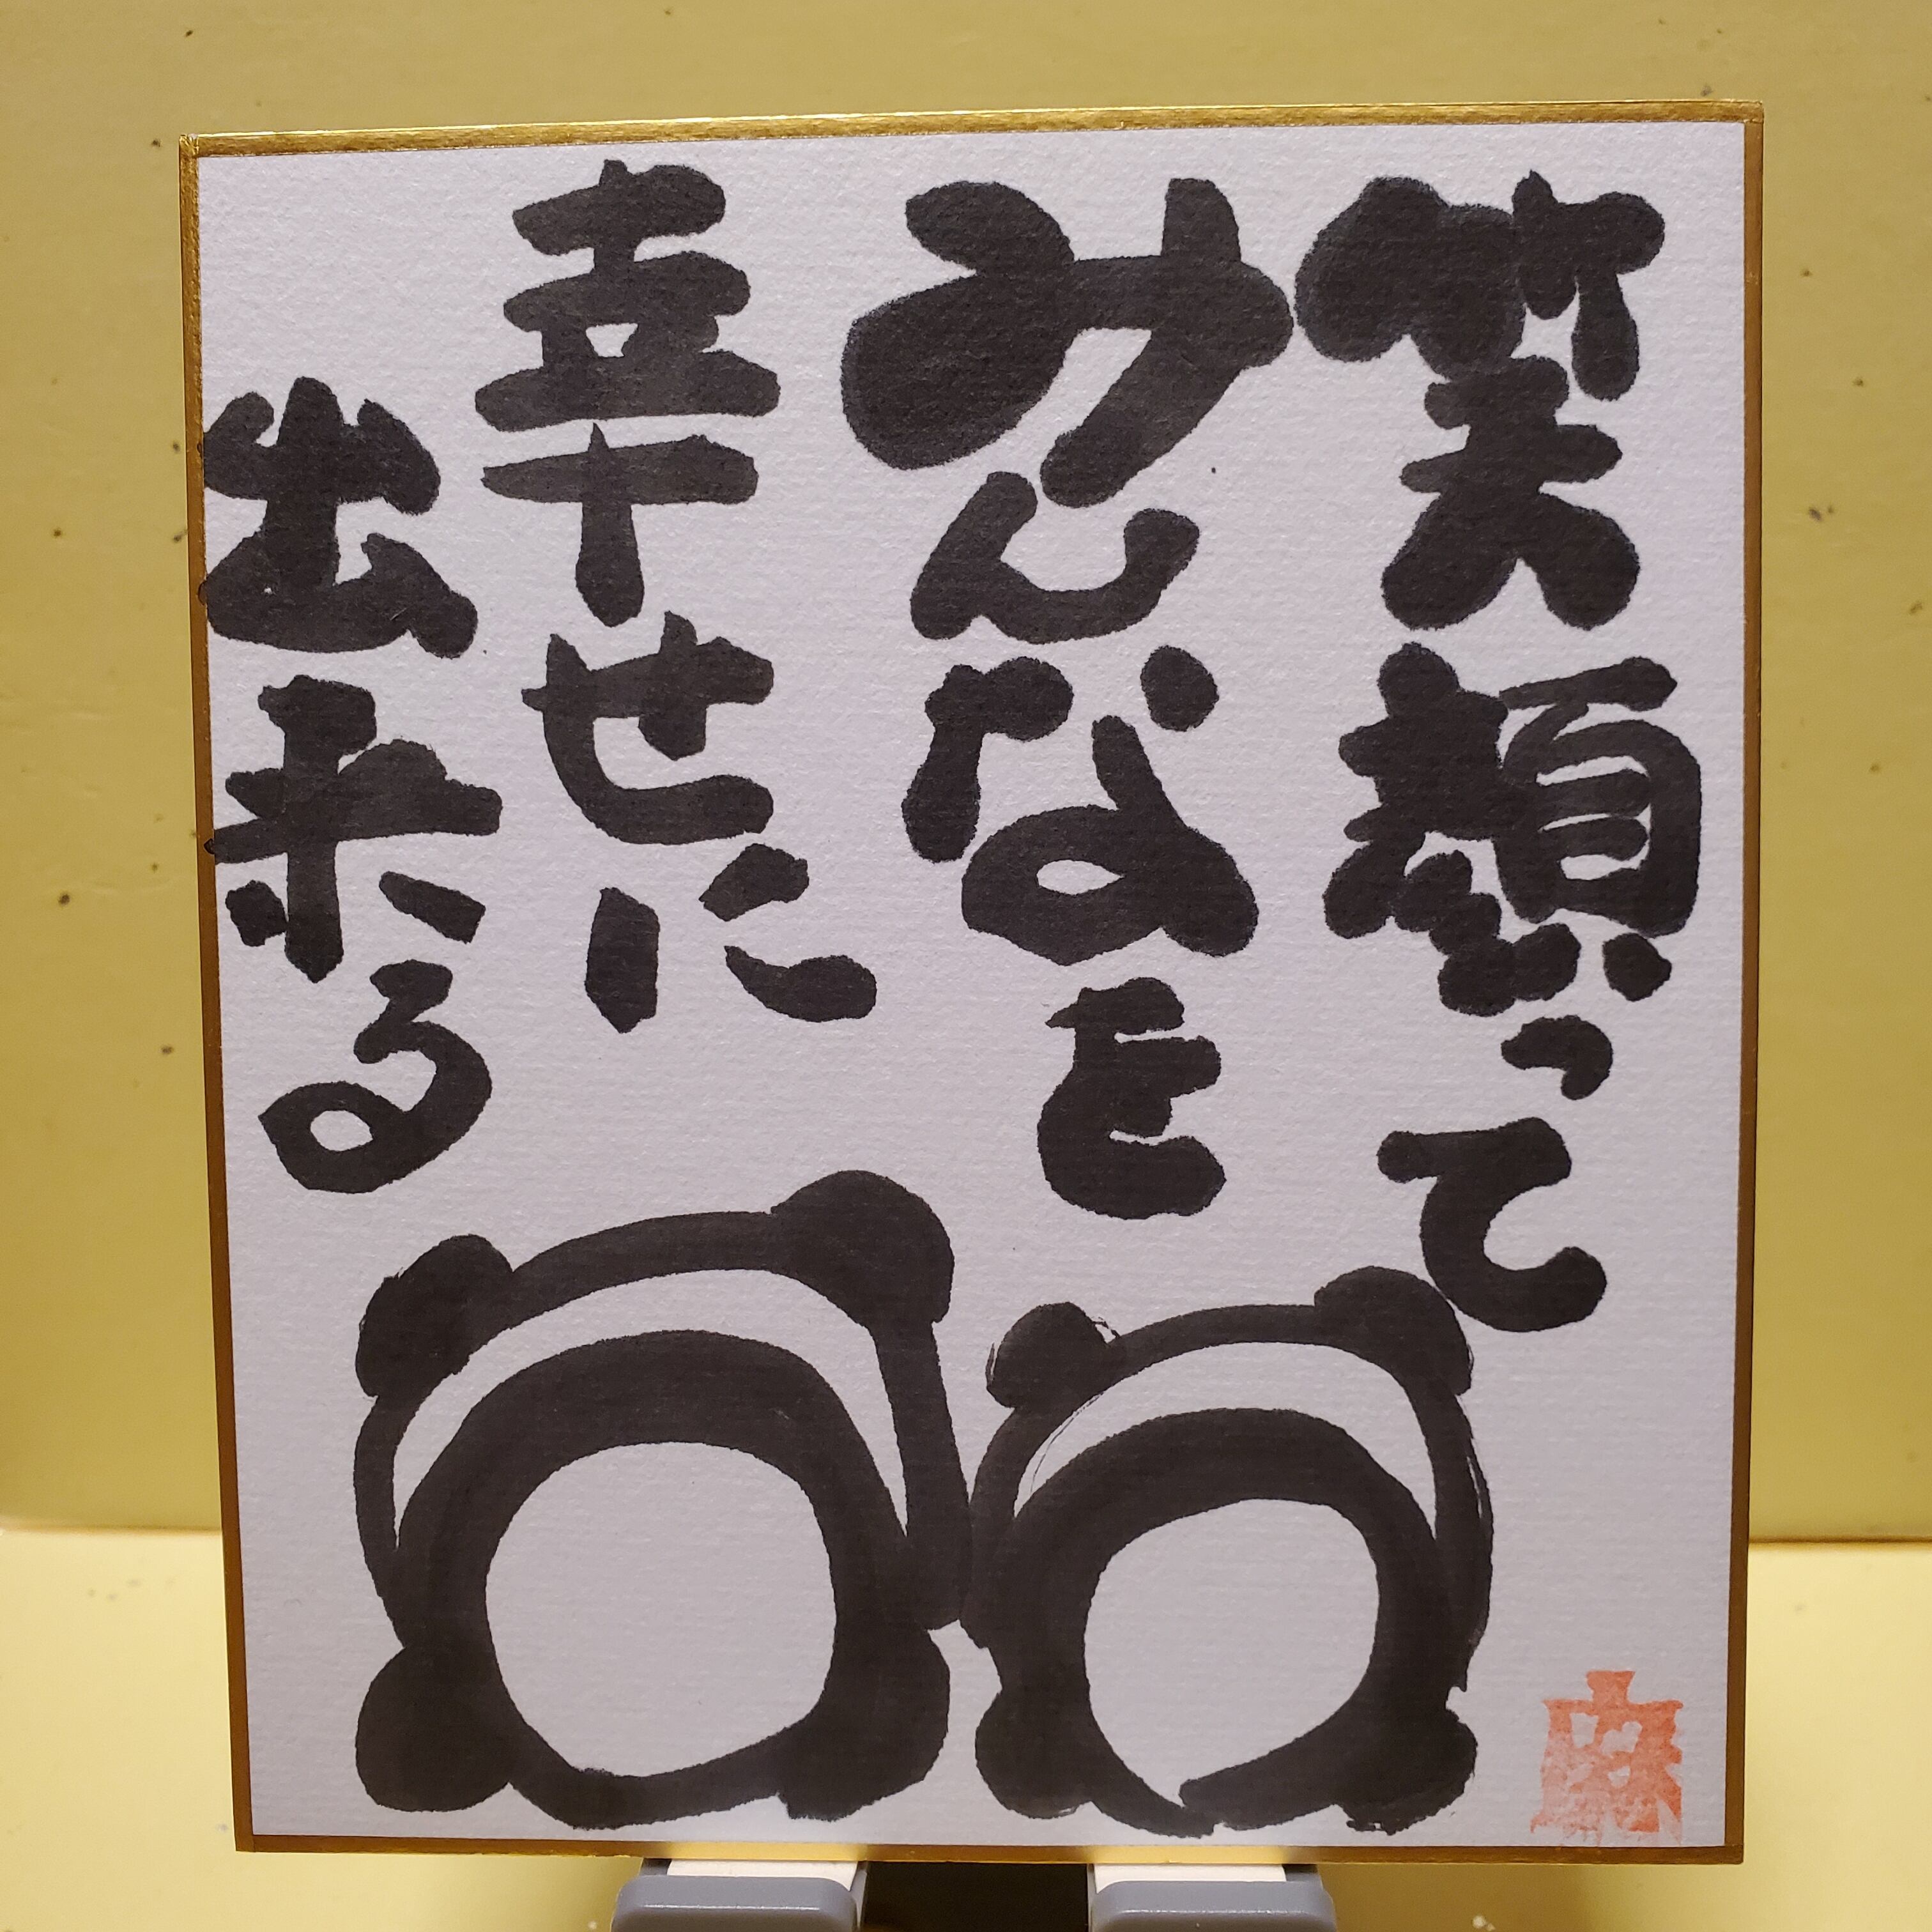 笑顔って
みんなを
幸せに
出来る